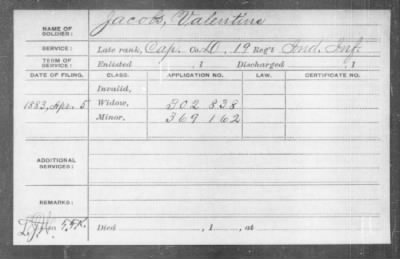 NAME OF SOLDIER: Jacobs, Valentine
SERVICE: Late rank, Cap. Co. D, 19 Reg't Ind. Inf.
TERM OF SERVICE: Enlisted , 1 Discharged , 1
DATE OF FILING. CLASS. APPLICATION NO. LAW. CERTIFICATE NO.
Invalid,
1883, Apr. 5 Widow, 302 838
Minor, 369 162
ADDITIONAL SERVICES:
REMARKS:
Died , 1 , at